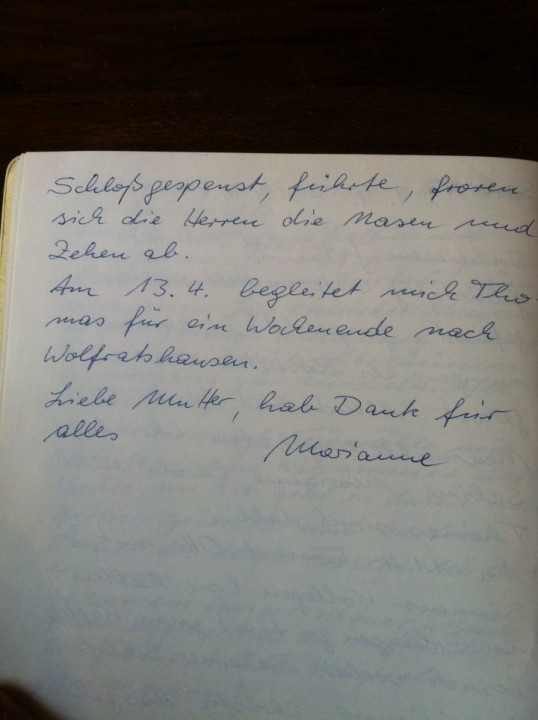 Schloßgespenst, führte, froren
sich die Herren die Nasen und
Zehen ab.
Am 13.4. begleitet mich Tho-
mas für ein Wochenende nach
Wolfratshausen.
Liebe Mutter, hab Dank für
alles
Marianne